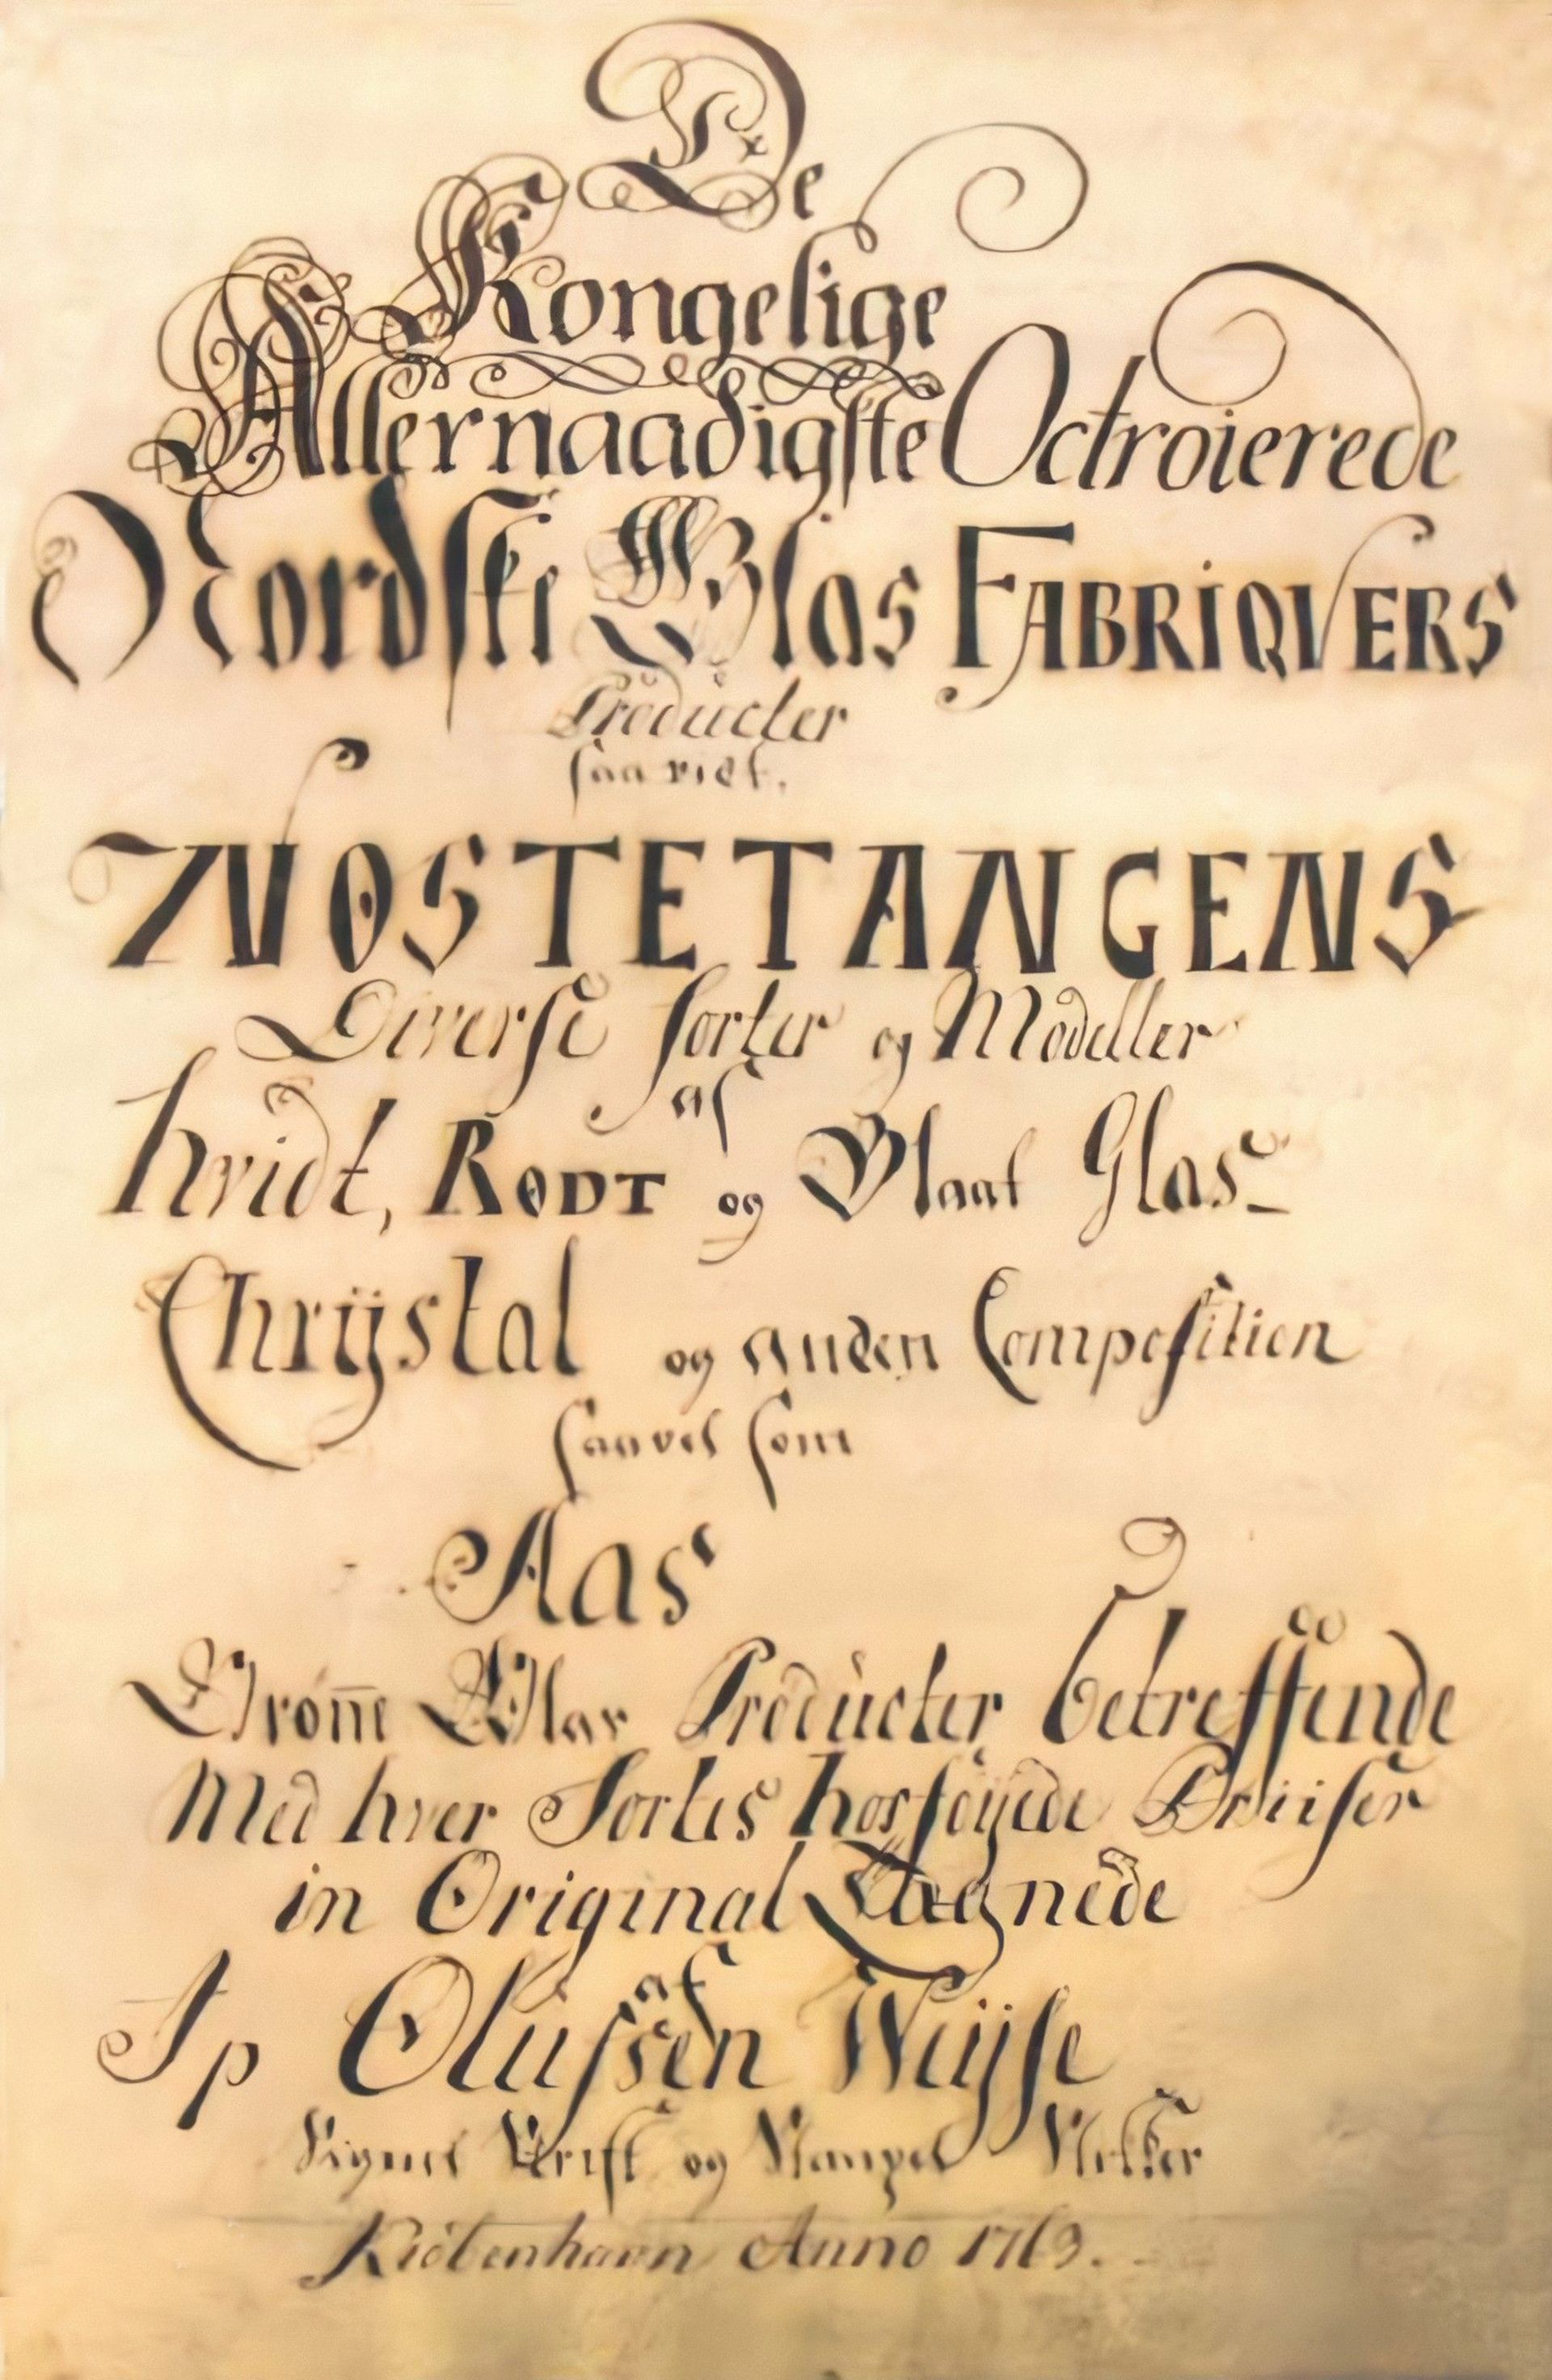 De
Kongelige
Allernaadigste Octroierede
Nordske Glas FABRIQVERS
Producter
saa vel.
NØSTETANGENS
Diverse sorter og Modeller
af
hvidt, RØDT og Blaat Glas
Chrÿstal og anden Composition
saavel som
Aas
Grøn̄e Glas Producter betreffende
Med hver Sortes hosføÿede Priiser
in Original Tægnede
af
Ip Olufsen Weÿse
Signet og Stempel Stikker
Kiöbenhavn Anno 1763.